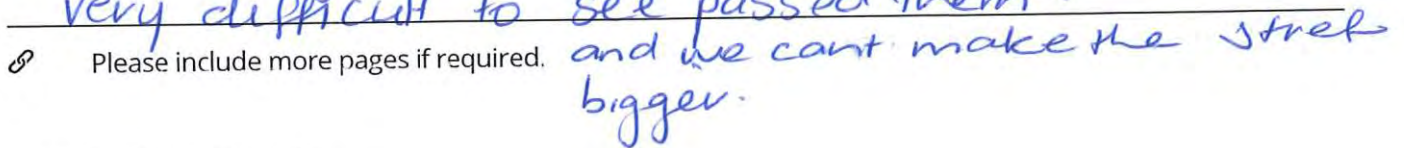 very difficult to see passed them
Please include more pages if required. and we cant make the stret
bigger.